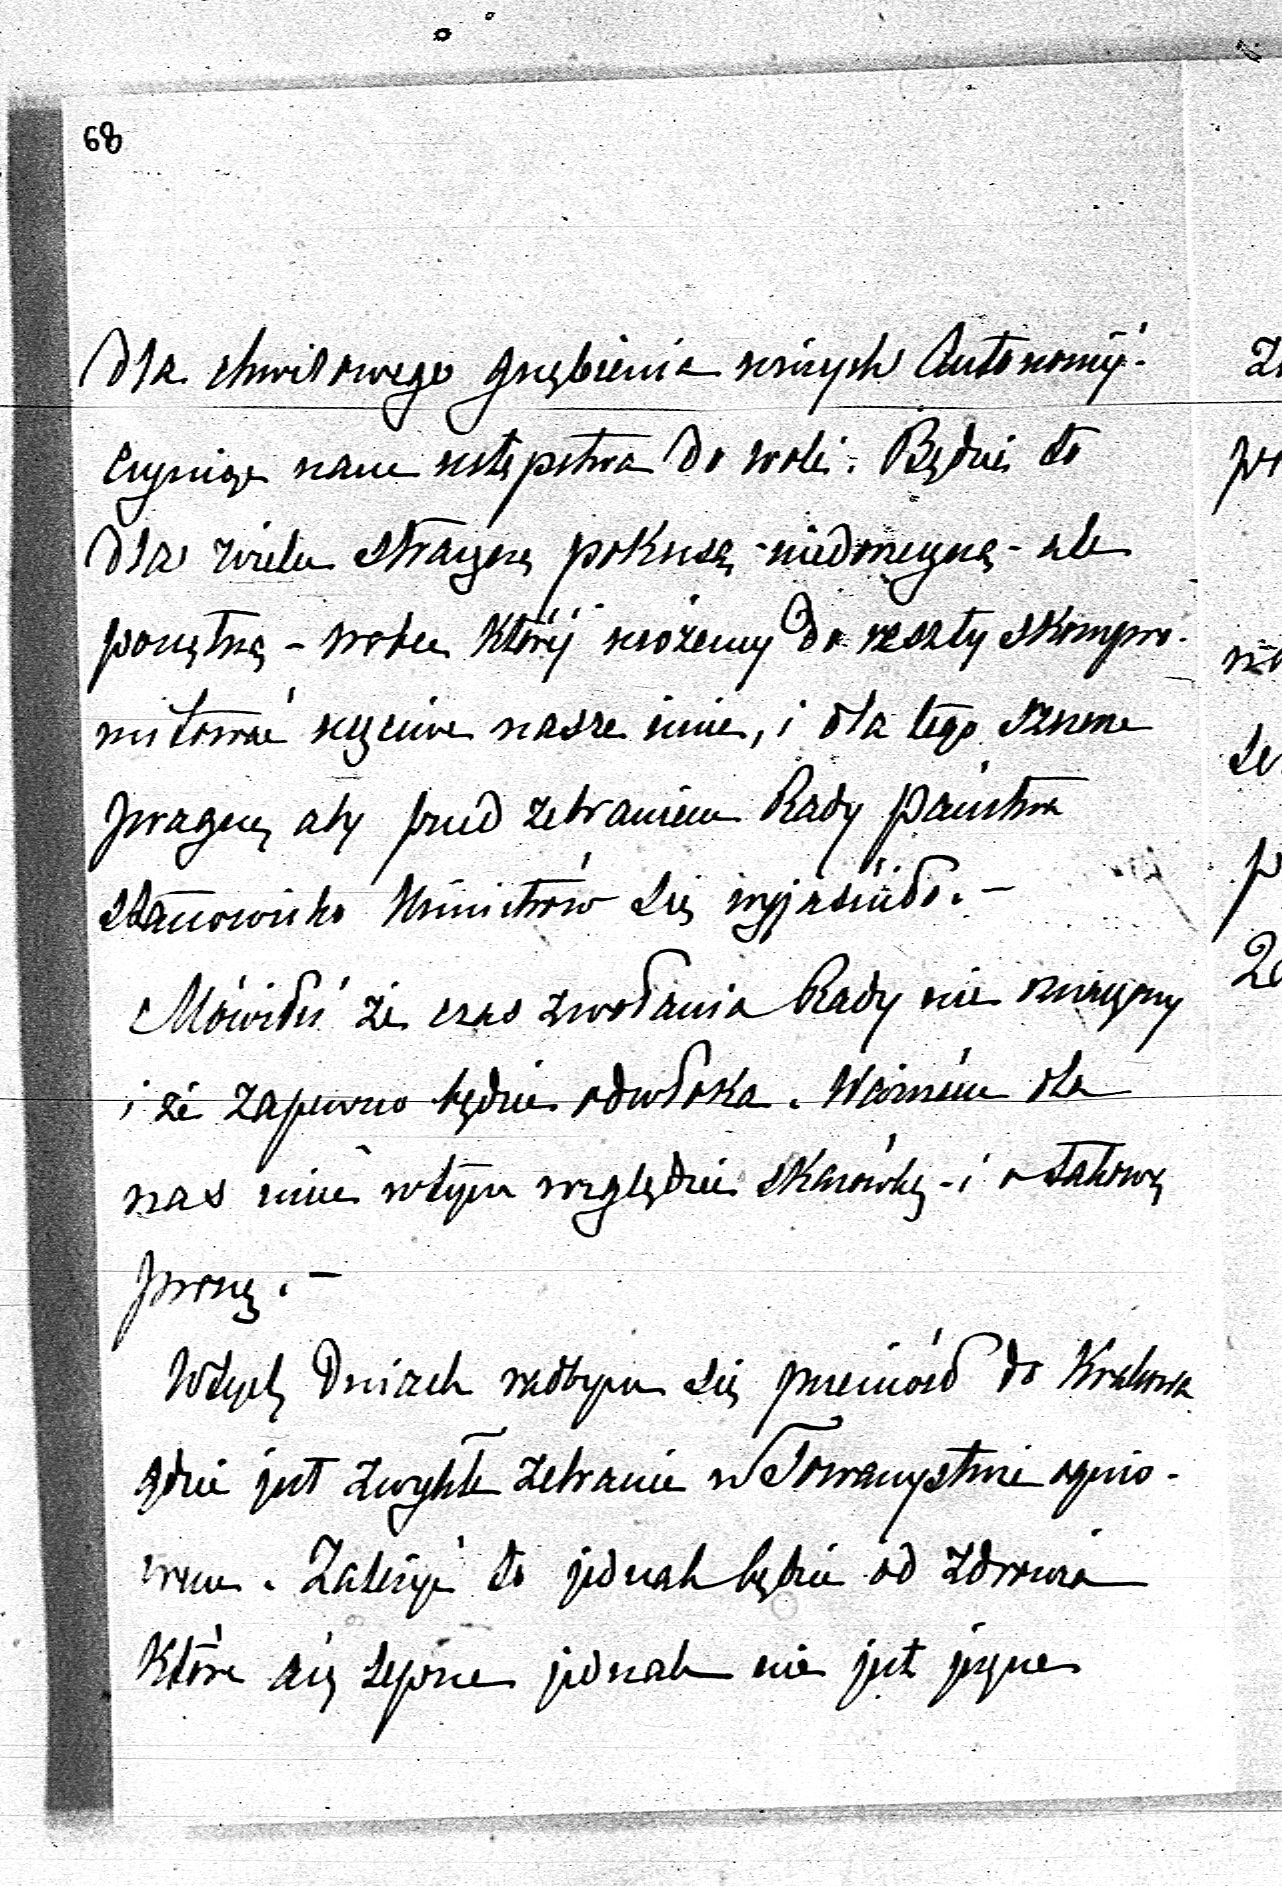 68
dla chwilowego gnębienia innych Autonomij
czyniąc nam ustępstwa do woli. Będzie to
dla wielu straszną pokusą - niedorzeczną - ale
ponętną - wobec której możemy do reszty skompro-
mitować uczciwe nasze imie, i dla tego
pragnę aby przed zebraniem Rady państwa
stanowisko Ministrów się wyjaśniło. -
Mówiłeś że czas zwołania Rady nie oznaczony
i że zapewno będzie odwłoka. Ważném dla
nas mieć w tym względzie skazówkę - i o takową
proszę. -
W tych dniach radbym się przeniósł do Krakowa
gdzie jest zwykłe zebranie w Towarzystwie ognio-
wem. Zależyć to jednak będzie od zdrowia
które się lepsze jednak nie jest